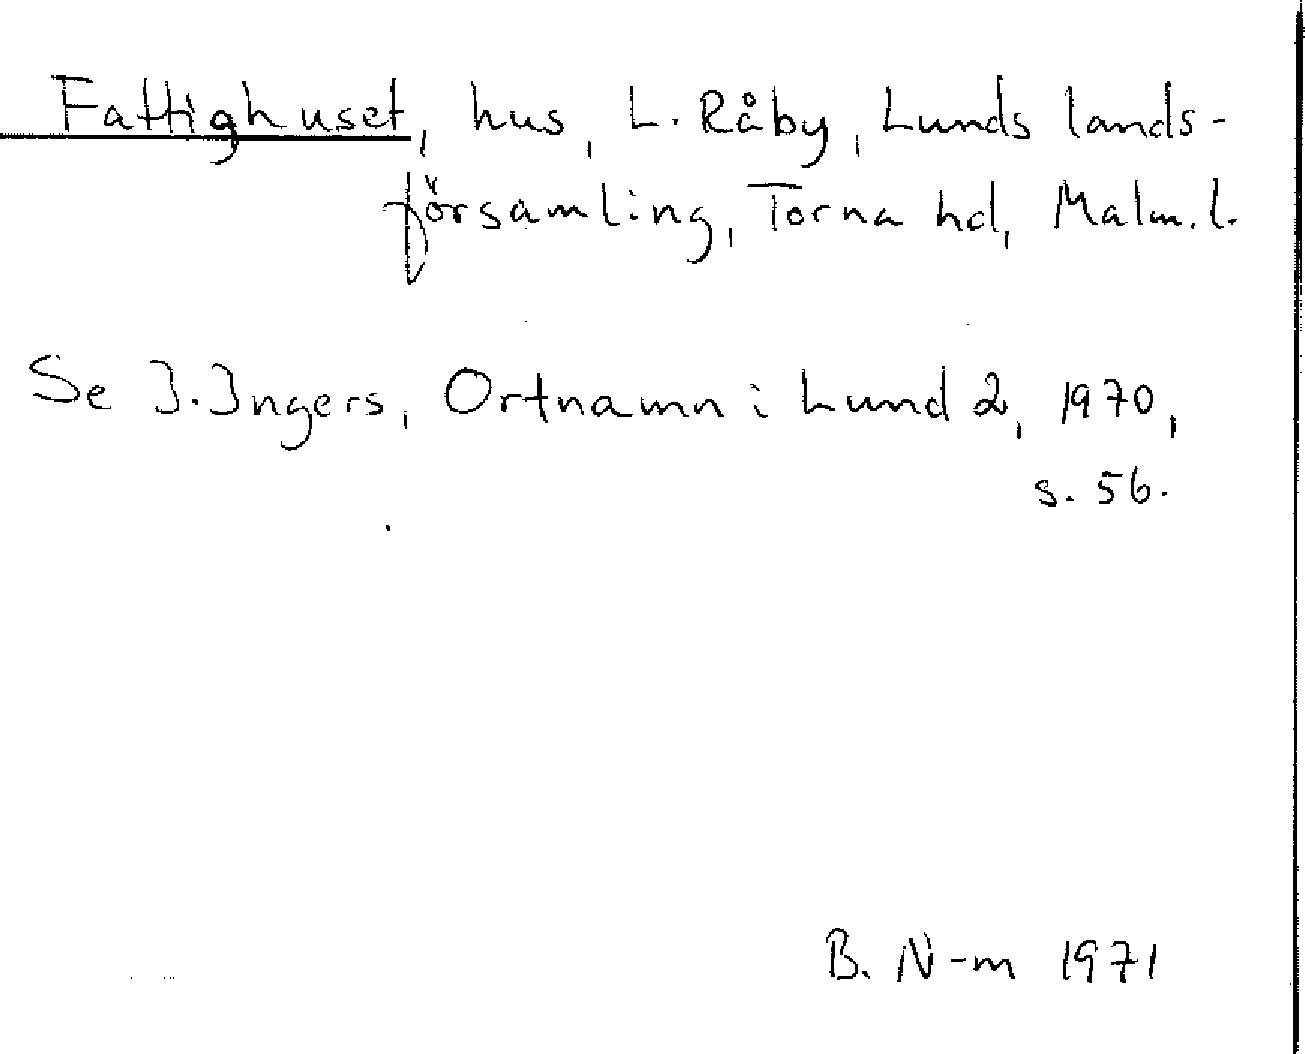 Fattighuset, hus, L. Råby, Lunds lands-
församling, Torna hd, Malm. l.
Se I. Ingers, Ortnamn i Lund 2, 1970,
s. 56.
B. N-m 1971